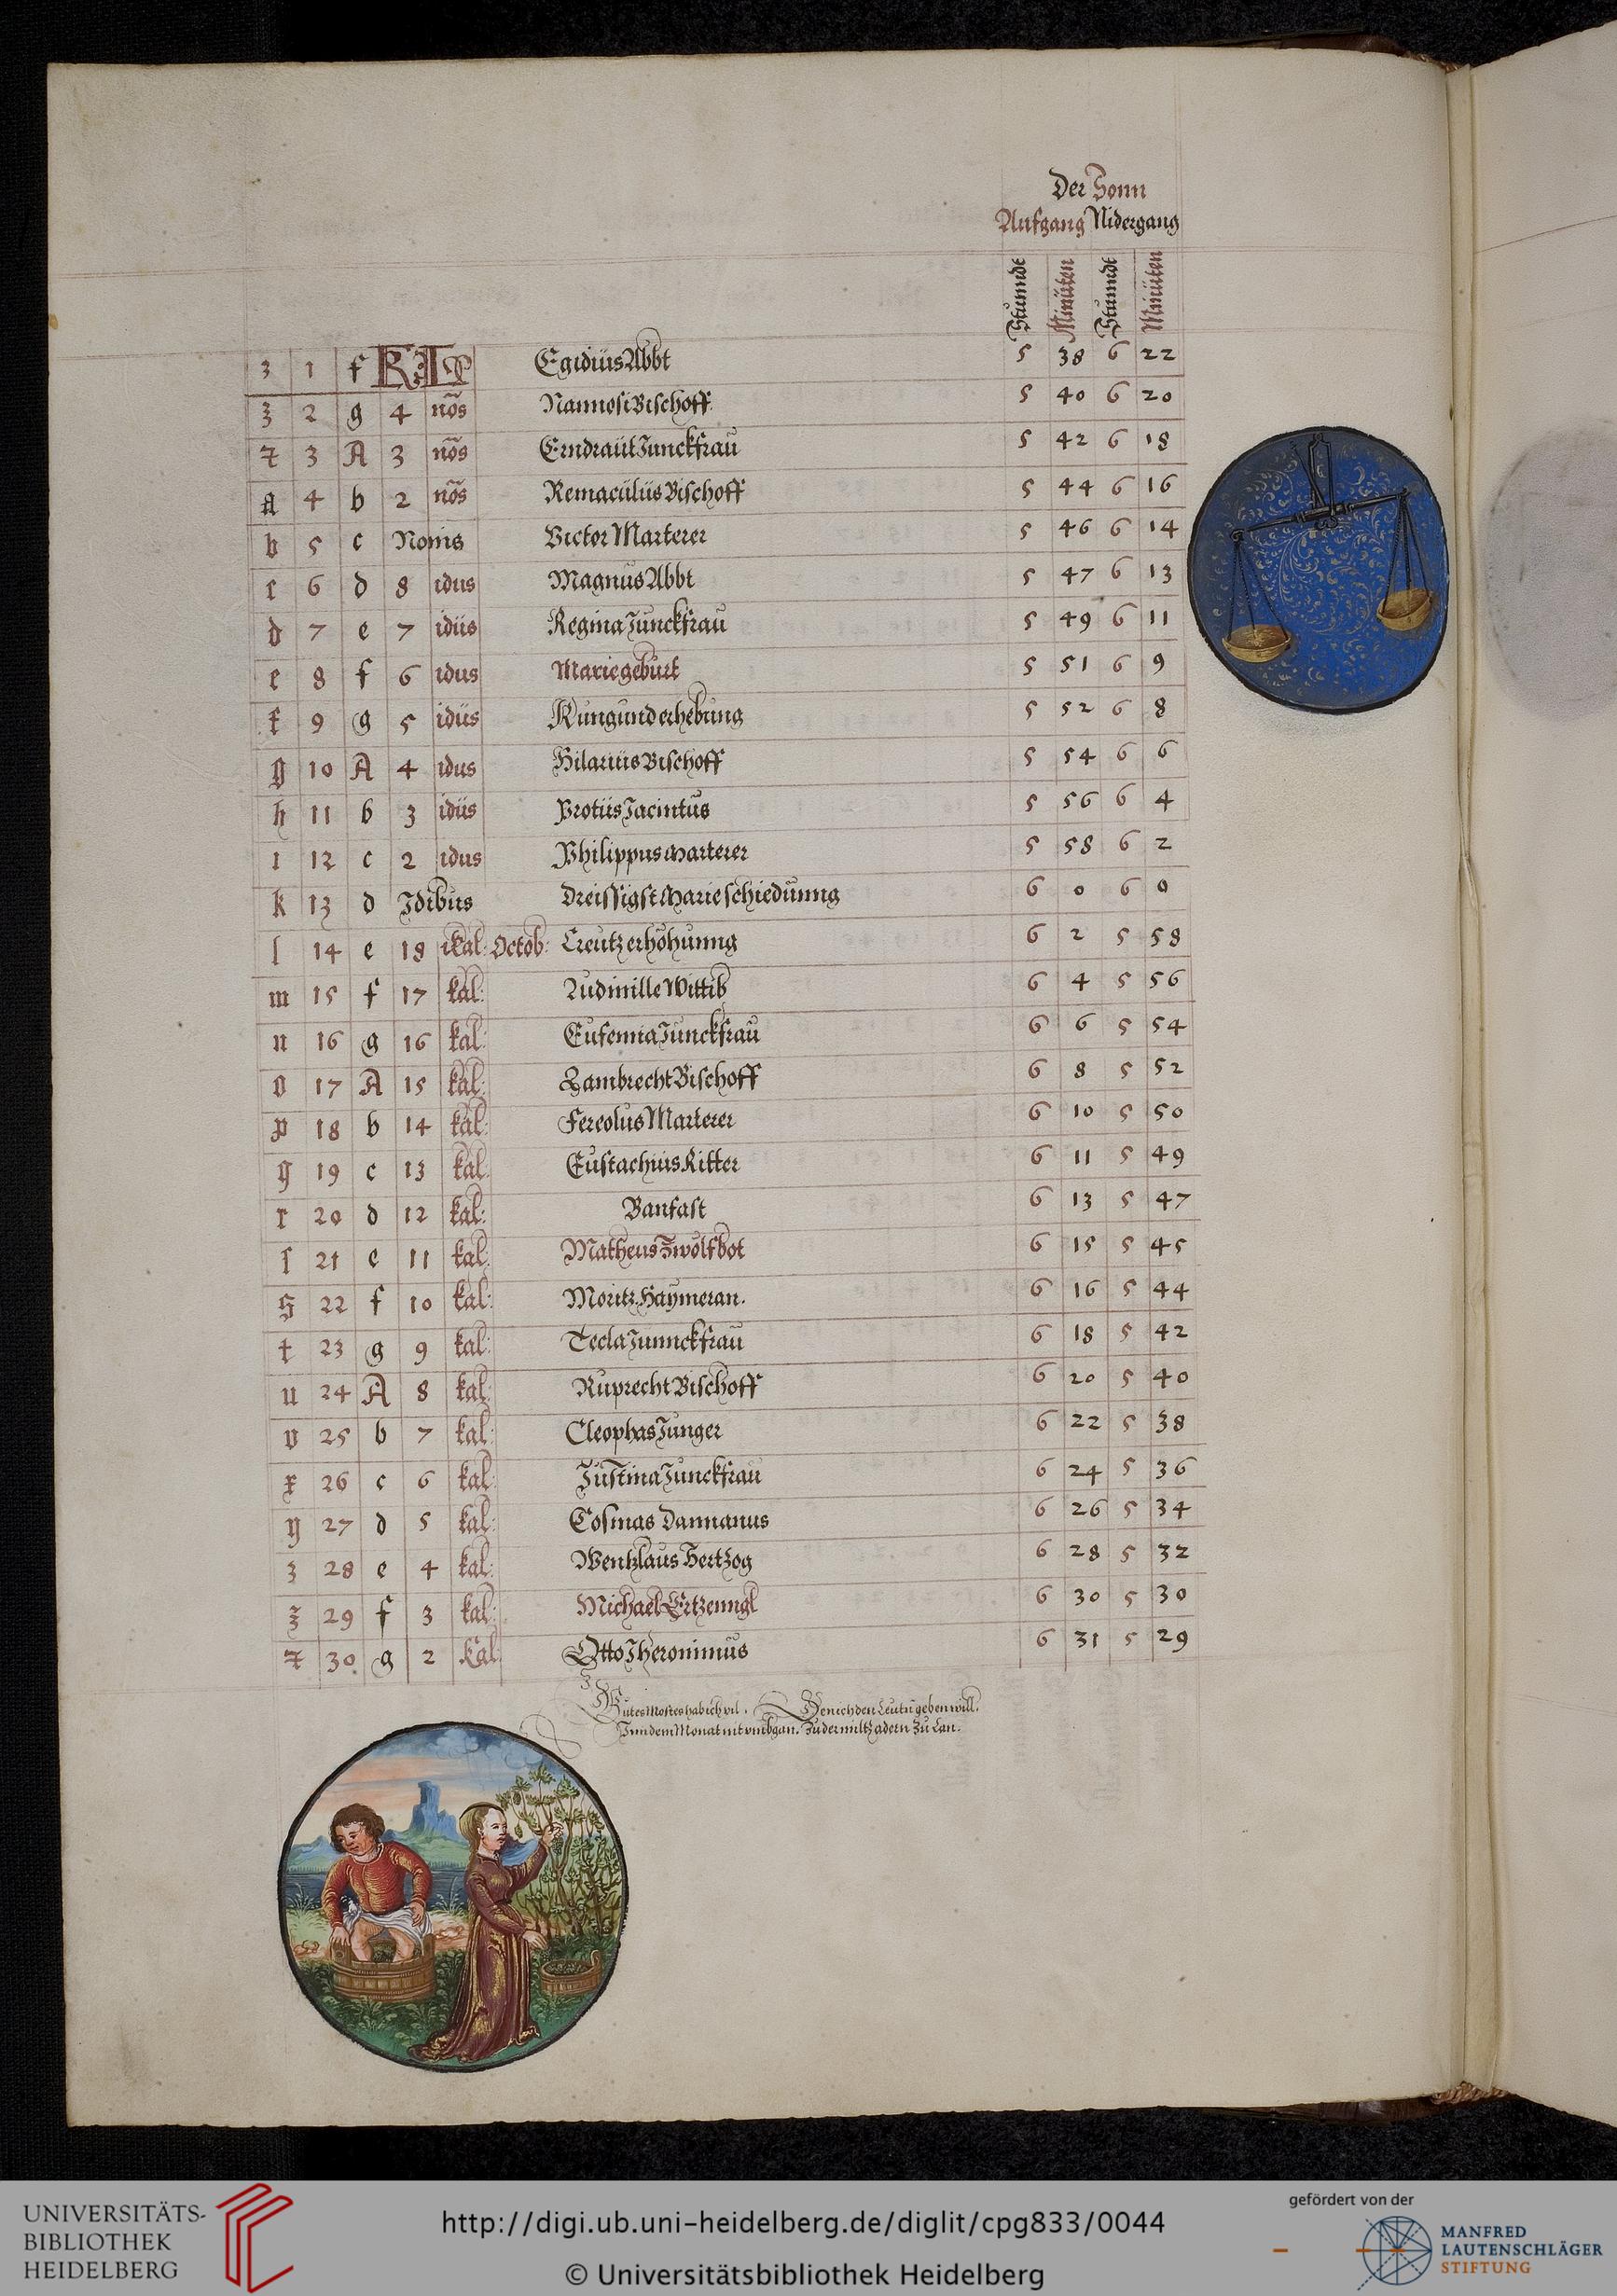 Der Sonn
Aufgang Nidergang
Stundt Minuten Stundt Minuten
3 1 f KL Egidius Abbt 5 38 6 22
ʒ 2 g 4 nõs Nannosi Bischoff 5 40 6 20
7 3 A 3 nõs Erndraut Junckfrau 5 42 6 18
a 4 b 2 nõs Remaculus Bischoff 5 44 6 16
b 5 c Nonis Victor Marterer 5 46 6 14
c 6 d 8 idus Magnus Abbt 5 47 6 13
d 7 e 7 idus Regina Junckfrau 5 49 6 11
e 8 f 6 idus Marie geburt 5 51 6 9
f 9 g 5 idus Kungund erhebung 5 52 6 8
g 10 A 4 idus Hilarius Bischoff 5 54 6 6
h 11 b 3 idus Protus Jacintus 5 56 6 4
i 12 c 2 idus Philippus Marterer 5 58 6 2
k 13 d Idibus Dreissigst Marie schiedunng 6 0 6 0
l 14 e 18 kal: Octob: Creutz erhohunng 6 2 5 58
m 15 f 17 kal: Ludmille Wittib 6 4 5 56
n 16 g 16 kal: Eufemia Junckfrau 6 6 5 54
o 17 A 15 kal: Lambrecht Bischoff 6 8 5 52
p 18 b 14 kal: Fereolus Marterer 6 10 5 50
q 19 c 13 kal: Eustachius Ritter 6 11 5 49
r 20 d 12 kal: Banfast 6 13 5 47
ſ 21 e 11 kal: Matheus Zwolfbot 6 15 5 45
s 22 f 10 kal: Moritz. Haymeran. 6 16 5 44
t 23 g 9 kal: Tecla Junnckfrau 6 18 5 42
u 24 A 8 kal: Ruprecht Bischoff 6 20 5 40
v 25 b 7 kal: Cleophas Junger 6 22 5 38
x 26 c 6 kal: Justina Junckfrau 6 24 5 36
y 27 d 5 kal: Cosmas Damianus 6 26 5 34
3 28 e 4 kal: Wentzlaus Hertzog 6 28 5 32
ʒ 29 f 3 kal: Michael Ertzenngl 6 30 5 30
7 30 g 2 Kal: Otto Jheronimus 6 31 5 29
Gutes Mostes hab ich vil. Den ich den Leutn geben will.
Inn dem Monat nit vmbgan. Zu der miltz adern Zu Lan.
UNIVERSITÄTS-
BIBLIOTHEK
HEIDELBERG
http://digi.ub.uni-heidelberg.de/diglit/cpg833/0044
© Universitätsbibliothek Heidelberg
gefördert von der
MANFRED
LAUTENSCHLÄGER
STIFTUNG